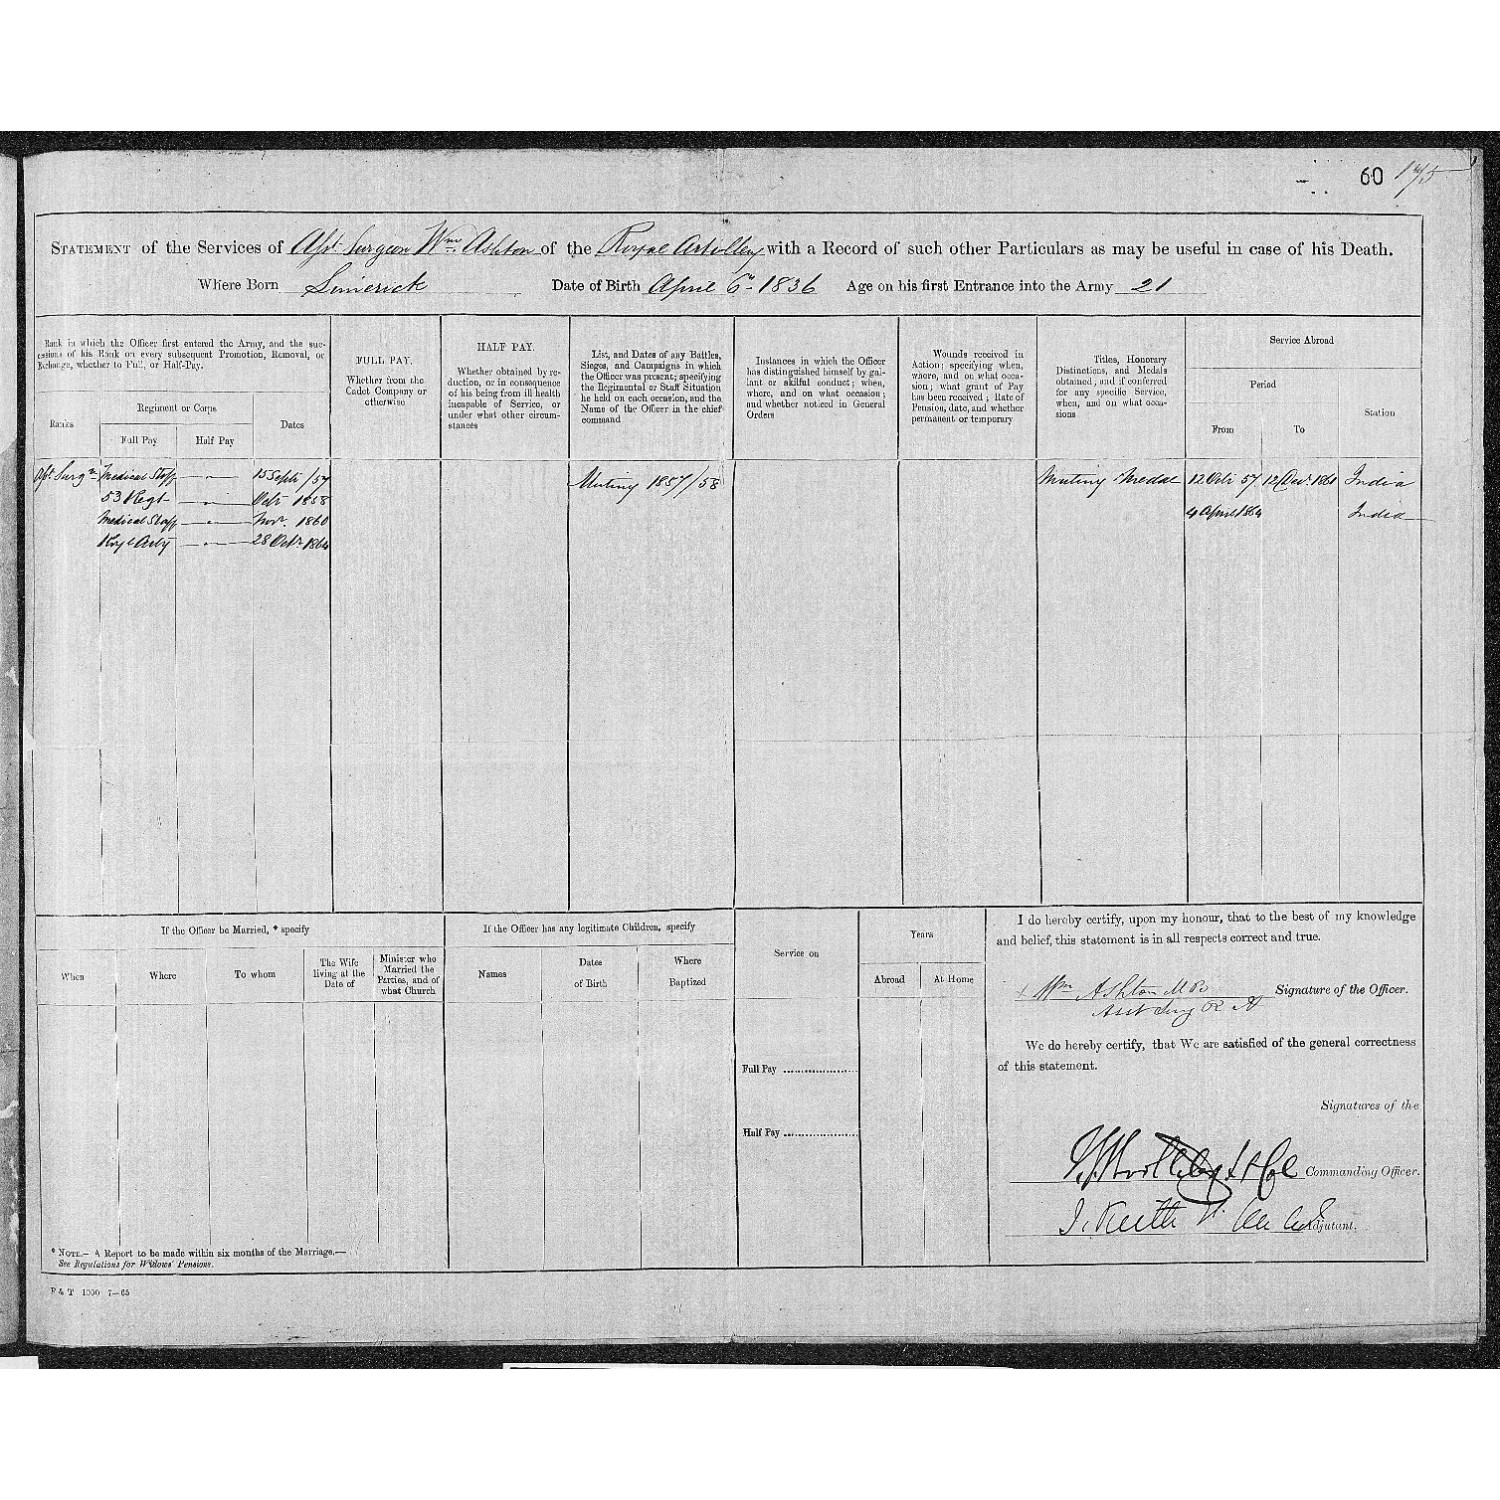 60 175
STATEMENT of the Services of Asst. Surgeon Wm. Ashton of the Royal Artillery with a Record of such other Particulars as may be useful in case of his Death.
Where Born Limerick Date of Birth April 6th 1836 Age on his first Entrance into the Army 21
Rank in which the Officer first entered the Army, and the suc-
cessions of his Rank on every subsequent Promotion, Removal, or
Exchange, whether to Full, or Half-Pay.
Regiment or Corps
Ranks
Full Pay
Half Pay
Dates
FULL PAY.
Whether from the
Cadet Company or
otherwise
HALF PAY.
Whether obtained by re-
duction, or in consequence
of his being from ill health
incapable of Service, or
under what other circum-
stances
List, and Dates of any Battles,
Sieges, and Campaigns in which
the Officer was present; specifying
the Regimental or Staff Situation
he held on each occasion, and the
Name of the Officer in the chief
command
Instances in which the Officer
has distinguished himself by gal-
lant or skilful conduct; when,
where, and on what occasion;
and whether noticed in General
Orders
Wounds received in
Action; specifying when,
where, and on what occa-
sion; what grant of Pay
has been received; Rate of
Pension, date, and whether
permanent or temporary
Titles, Honorary
Distinctions, and Medals
obtained, and if conferred
for any specific Service,
when, and on what occa-
sions
Service Abroad
Period
From
To
Station
Asst. Surgn Medical Staff — " — 15 Septr /57 Mutiny 1857/58 Mutiny Medal 12 Octr 57 12 Decr. 1860 India
53 Regt — " — Octr 1858
Medical Staff — " — Novr. 1860 4 April 1864 India
Royl Arty — " — 28 Octr. 1864
If the Officer be Married, * specify
When
Where
To whom
The Wife
living at the
Date of
Minister who
Married the
Parties, and of
what Church
If the Officer has any legitimate Children, specify
Names
Dates
of Birth
Where
Baptized
Service on
Years
Abroad
At Home
Full Pay
Half Pay
I do hereby certify, upon my honour, that to the best of my knowledge
and belief, this statement is in all respects correct and true.
x Wm Ashton M.D. Signature of the Officer.
Asst Surg R A
We do hereby certify, that We are satisfied of the general correctness
of this statement.
Signatures of the
Lt Col Commanding Officer.
J. Keith Adjutant.
* NOTE.— A Report to be made within six months of the Marriage.—
See Regulations for Widows' Pensions.
P & T 1500 7—65